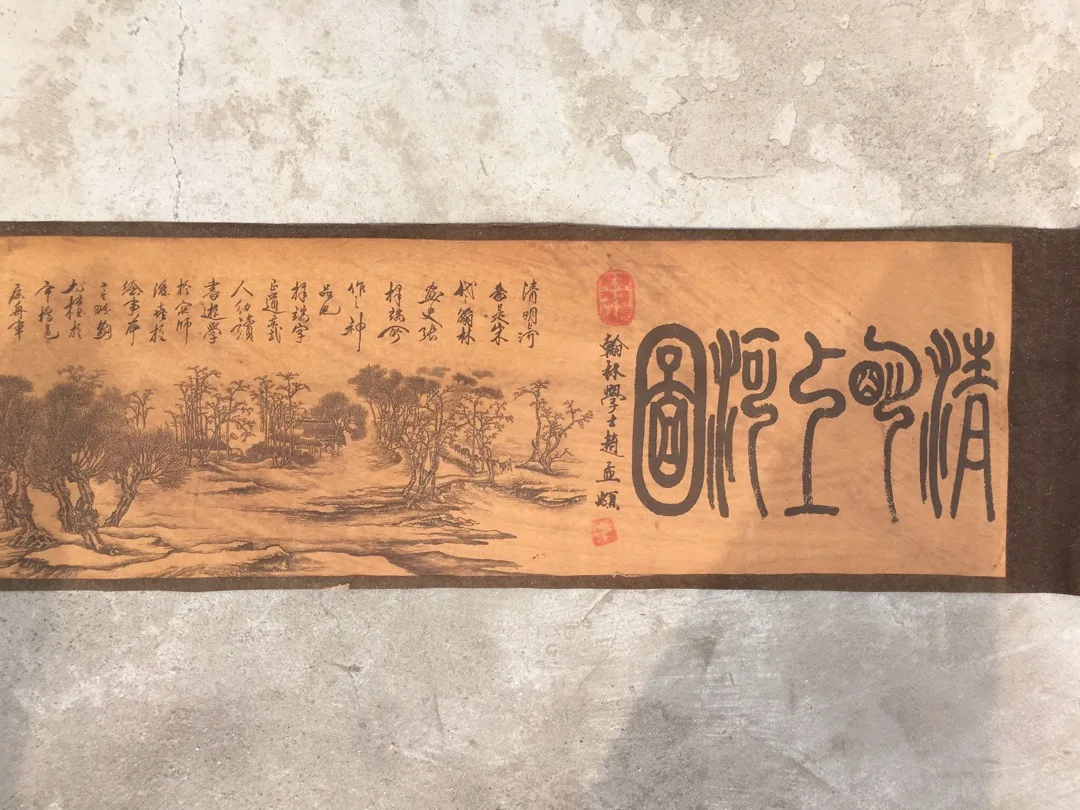 清明上河圖
翰林學士趙孟頫
清明河
卷是宋
代翰林
畫史張
擇端所
作之神
品也
擇端字
正道武
人幼讀
書遊學
於京師
後於
繪事本
工
尤於
市橋
舟車